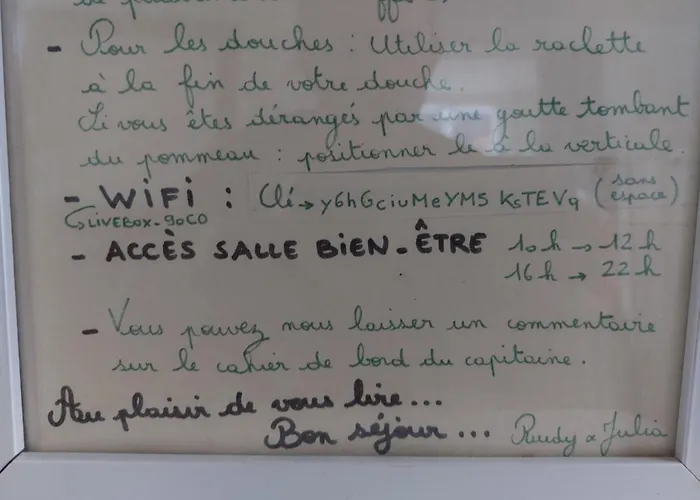 - Pour les douches : Utiliser la raclette
à la fin de votre douche.
Si vous êtes dérangés par une goutte tombant
du pommeau : positionner le à la verticale.
- WiFi : Clé → y6hGciuMeYM5 KsTEVq (sans espace)
↳ LIVEBOX-90C0
- ACCÈS SALLE BIEN-ÊTRE 10h → 12h
16h → 22h
- Vous pouvez nous laisser un commentaire
sur le cahier de bord du capitaine.
Au plaisir de vous lire...
Bon séjour... Rudy & Julia